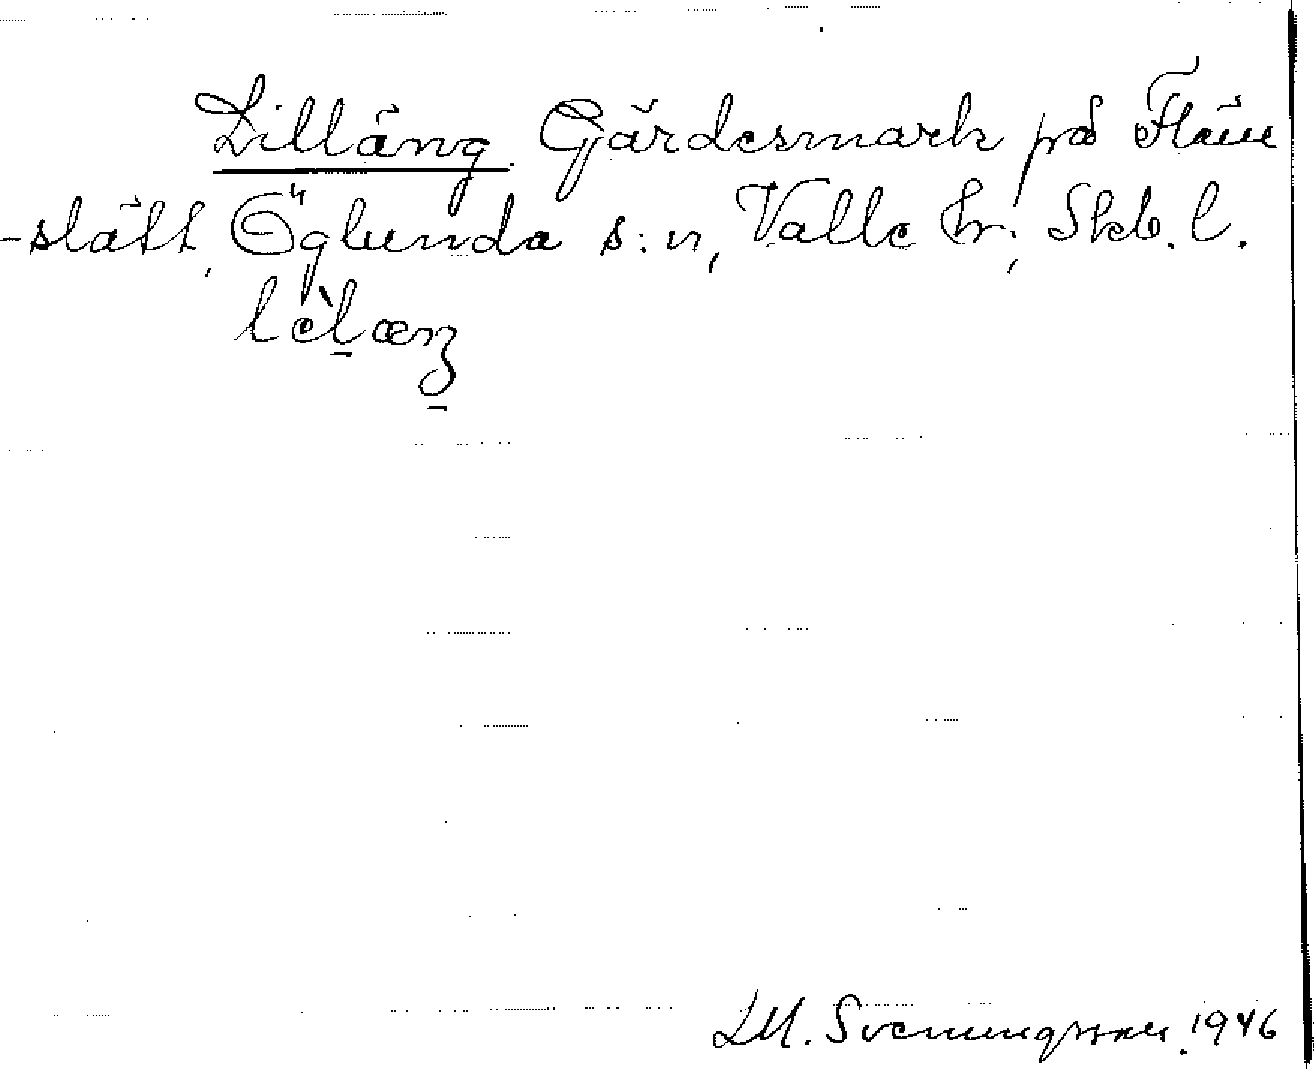 Lilläng. Gärdesmark på Fläm
-slätt, Öglunda s:n, Valle hr, Skb. l.
L.M. Svenungsson. 1946